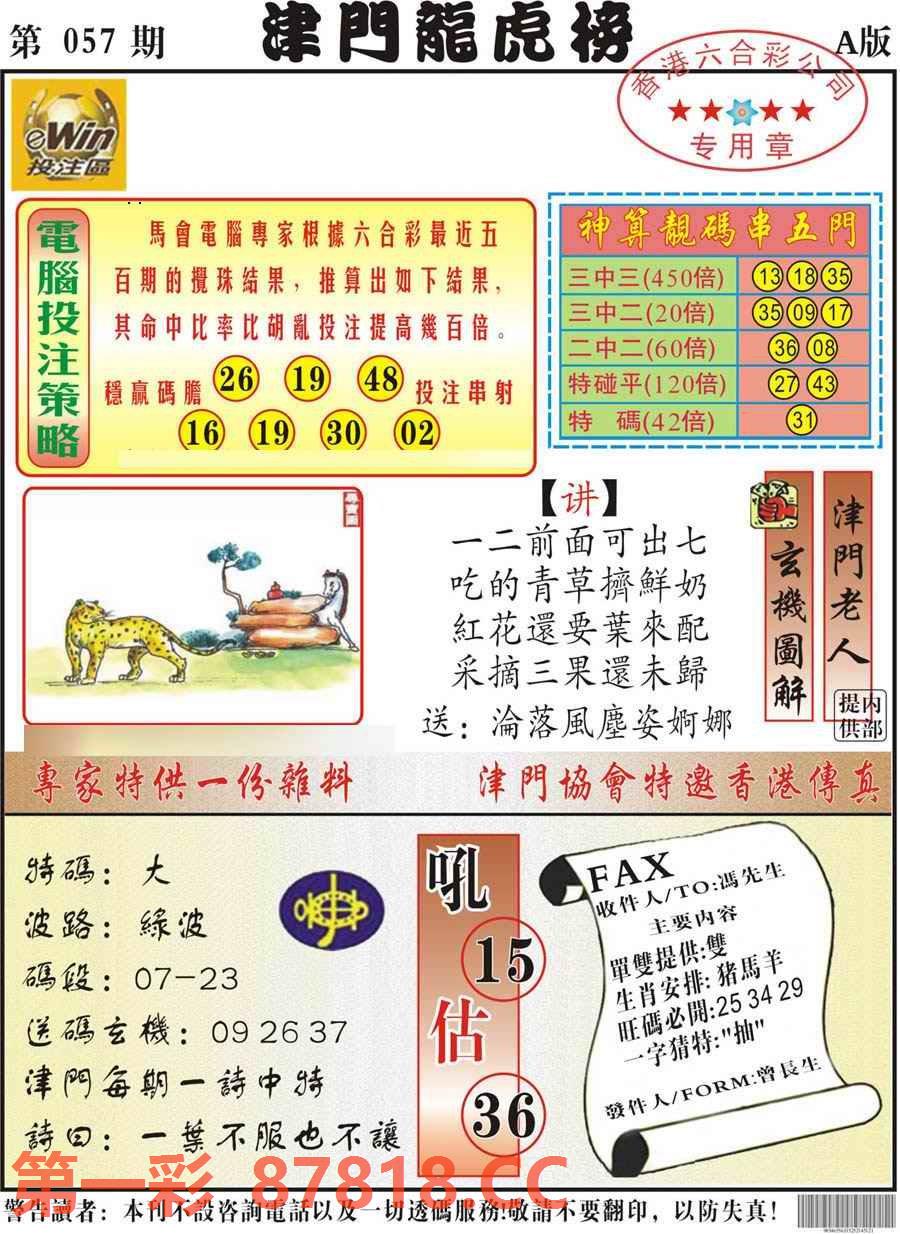 第 057 期
津門龍虎榜
A版
香港六合彩公司
专用章
eWin
投注區
電腦投注策略
馬會電腦專家根據六合彩最近五
百期的攪珠結果，推算出如下結果，
其命中比率比胡亂投注提高幾百倍。
穩贏碼膽 26 19 48 投注串射
16 19 30 02
神算靚碼串五門
三中三(450倍) 13 18 35
三中二(20倍) 35 09 17
二中二(60倍) 36 08
特碰平(120倍) 27 43
特 碼(42倍) 31
【讲】
一二前面可出七
吃的青草擠鮮奶
紅花還要葉來配
采摘三果還未歸
送：淪落風塵姿婀娜
玄機圖解
津門老人
提供
内部
專家特供一份雜料
津門協會特邀香港傳真
特碼：大
波路：綠波
碼段：07-23
送碼玄機：09 26 37
津門每期一詩中特
詩曰：一葉不服也不讓
吼
15
估
36
FAX
收件人/TO:馮先生
主要内容
單雙提供:雙
生肖安排:猪馬羊
旺碼必開:25 34 29
一字猜特:"抽"
發件人/FORM:曾長生
第一彩 87818.CC
警告讀者：本刊不設咨詢電話以及一切透碼服務!敬請不要翻印，以防失真!